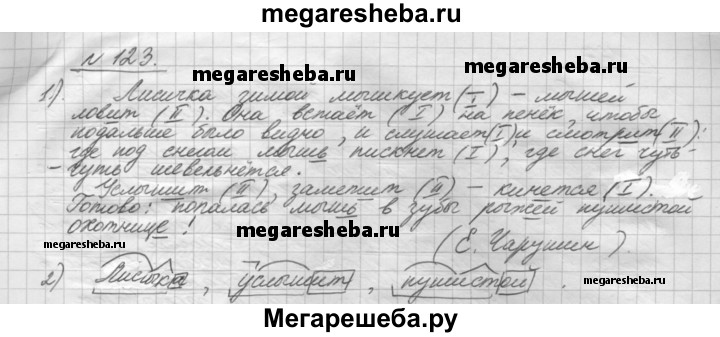 megaresheba.ru
№ 123.
megaresheba.ru
megaresheba.ru
1). Лисичка зимой мышкует (I) – мышей
ловит (II). Она встаёт (I) на пенёк, чтобы
подальше было видно, и слушает (I) и смотрит (II):
где под снегом мышь пискнет (I), где снег чуть-
-чуть шевельнётся.
Услышит (II), заметит (II) – кинется (I).
Готово: попалась мышь в зубы рыжей пушистой
охотнице!
megaresheba.ru
megaresheba.ru
(Е. Чарушин).
2) Лисичка, услышит, пушистой.
megaresheba.ru
megaresheba.ru
Мегарешеба.ру